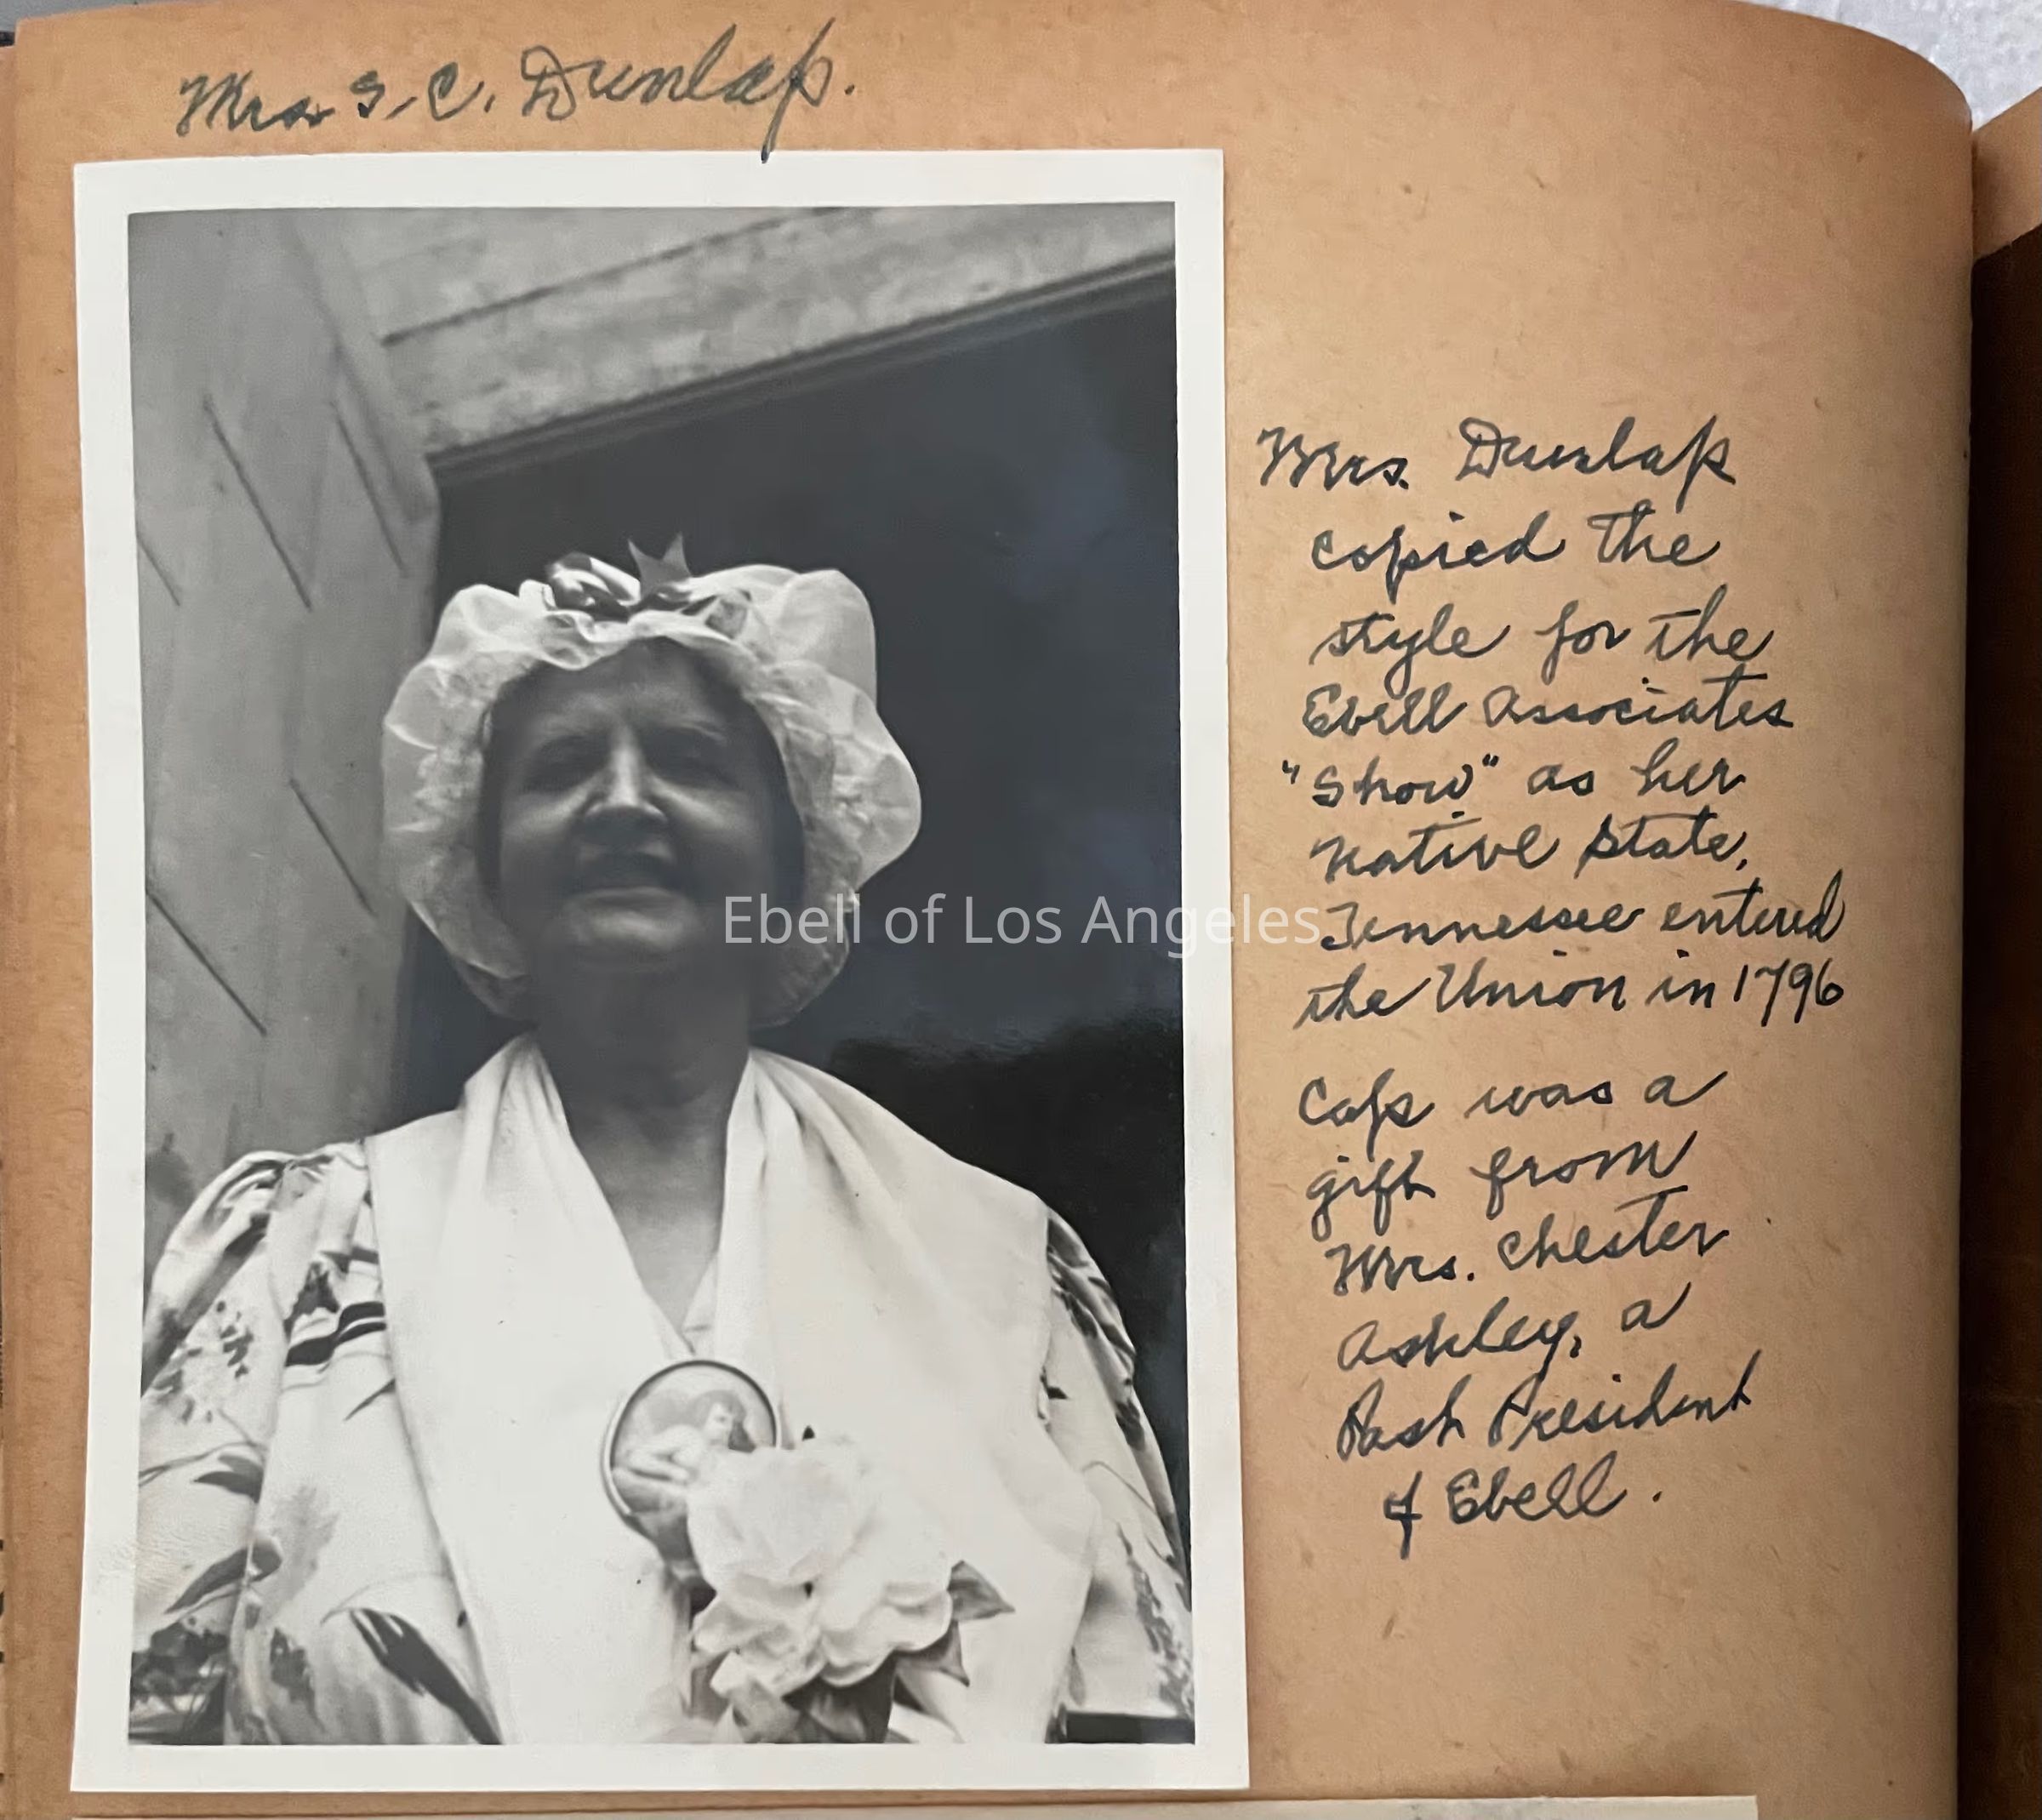 Mrs S. C. Dunlap.
Mrs. Dunlap
copied the
style for the
Ebell Associates
"Show" as her
native state,
Tennessee entered
the Union in 1796
Cap was a
gift from
Mrs. Chester
Ashley, a
Past President
of Ebell.
Ebell of Los Angeles